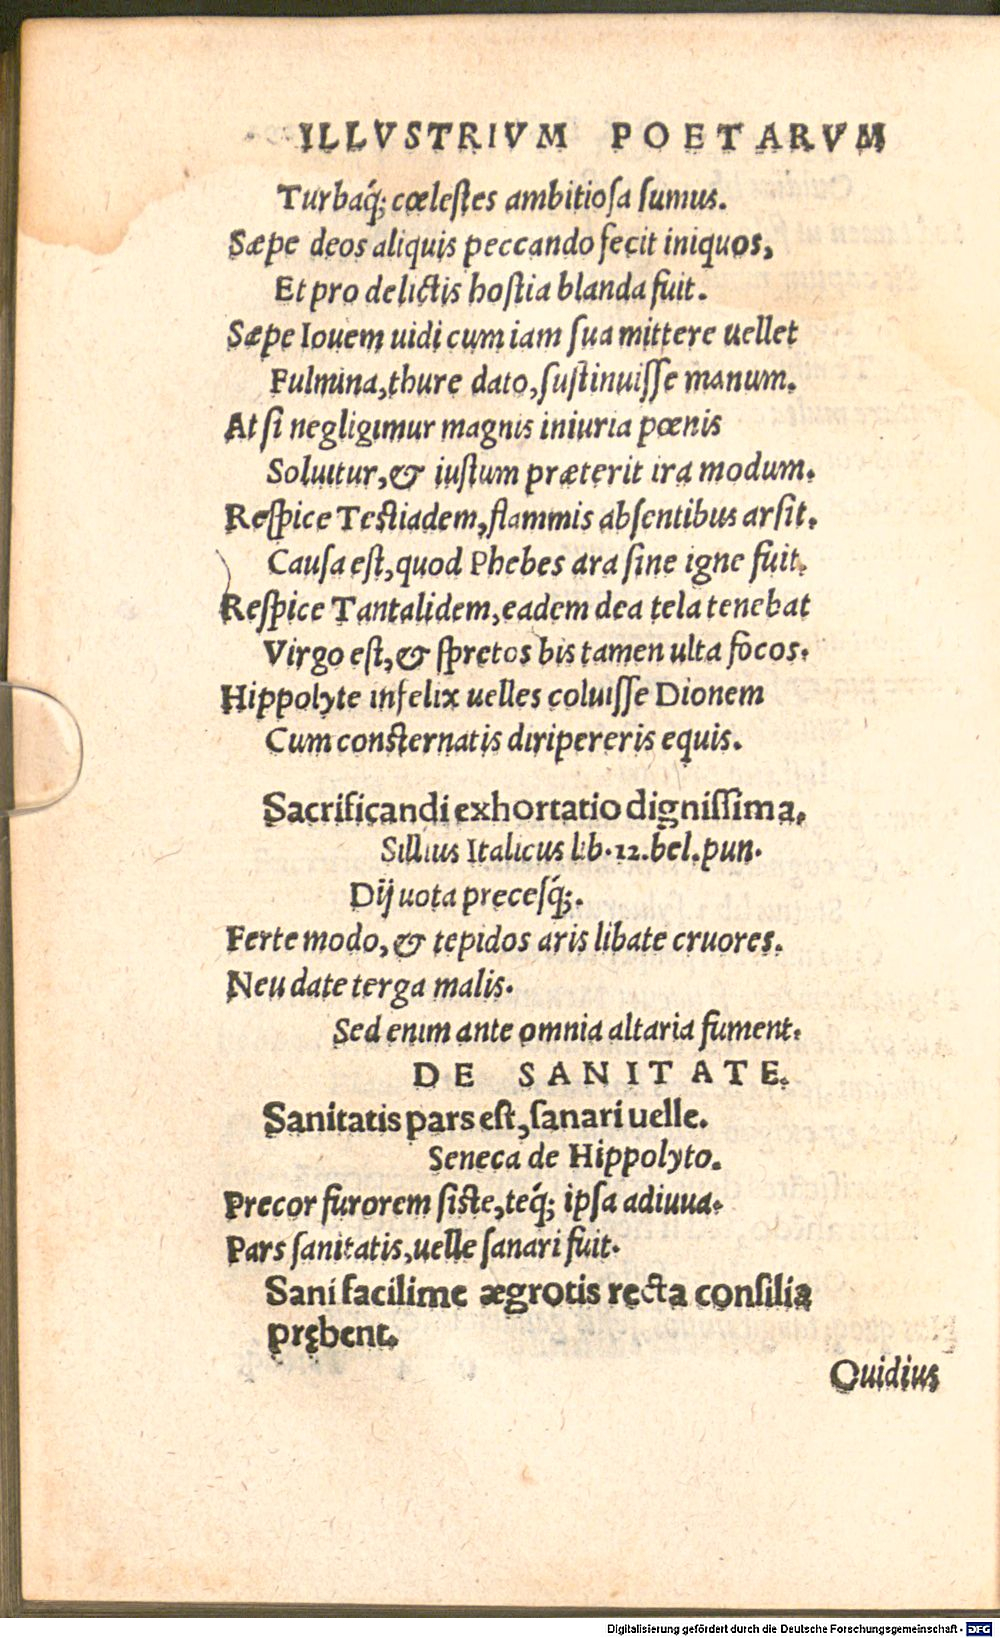 ILLVSTRIVM POETARVM
Turbaq́; cœlestes ambitiosa sumus.
Sæpe deos aliquis peccando fecit iniquos,
Et pro delictis hostia blanda fuit.
Sæpe Iouem uidi cum iam sua mittere uellet
Fulmina, thure dato, sustinuisse manum.
At si negligimur magnis iniuria pœnis
Soluitur, & iustum præterit ira modum.
Respice Testiadem, flammis absentibus arsit.
Causa est, quod Phebes ara sine igne fuit.
Respice Tantalidem, eadem dea tela tenebat
Virgo est, & spretos bis tamen ulta focos.
Hippolyte infelix uelles coluisse Dionem
Cum consternatis diripereris equis.
Sacrificandi exhortatio dignissima.
Sillius Italicus lib. 12. bel. pun.
Dij uota precesq́;.
Ferte modo, & tepidos aris libate cruores.
Neu date terga malis.
Sed enim ante omnia altaria fument.
DE SANITATE.
Sanitatis pars est, sanari uelle.
Seneca de Hippolyto.
Precor furorem siste, teq́; ipsa adiuua.
Pars sanitatis, uelle sanari fuit.
Sani facilime ægrotis recta consilia
prębent.
Ouidius
Digitalisierung gefördert durch die Deutsche Forschungsgemeinschaft - DFG